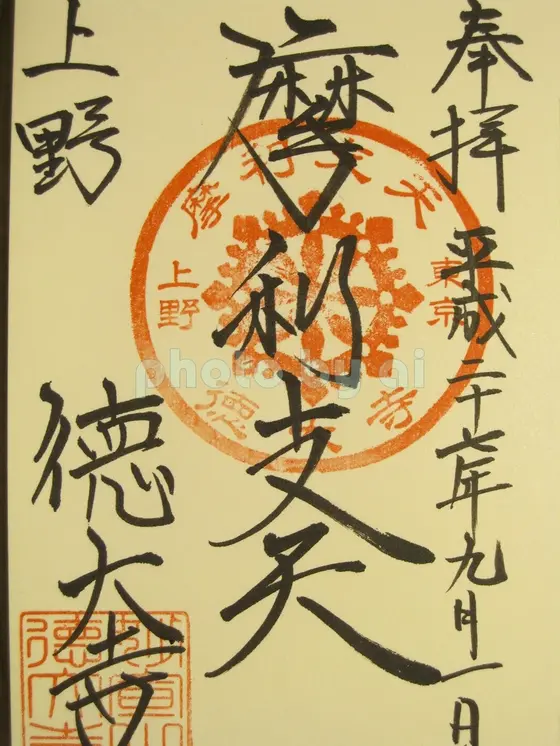 奉拝 平成二十七年九月一日
摩利支天
上野 徳大寺
摩利支天
東京
上野
徳大寺
photo by ai